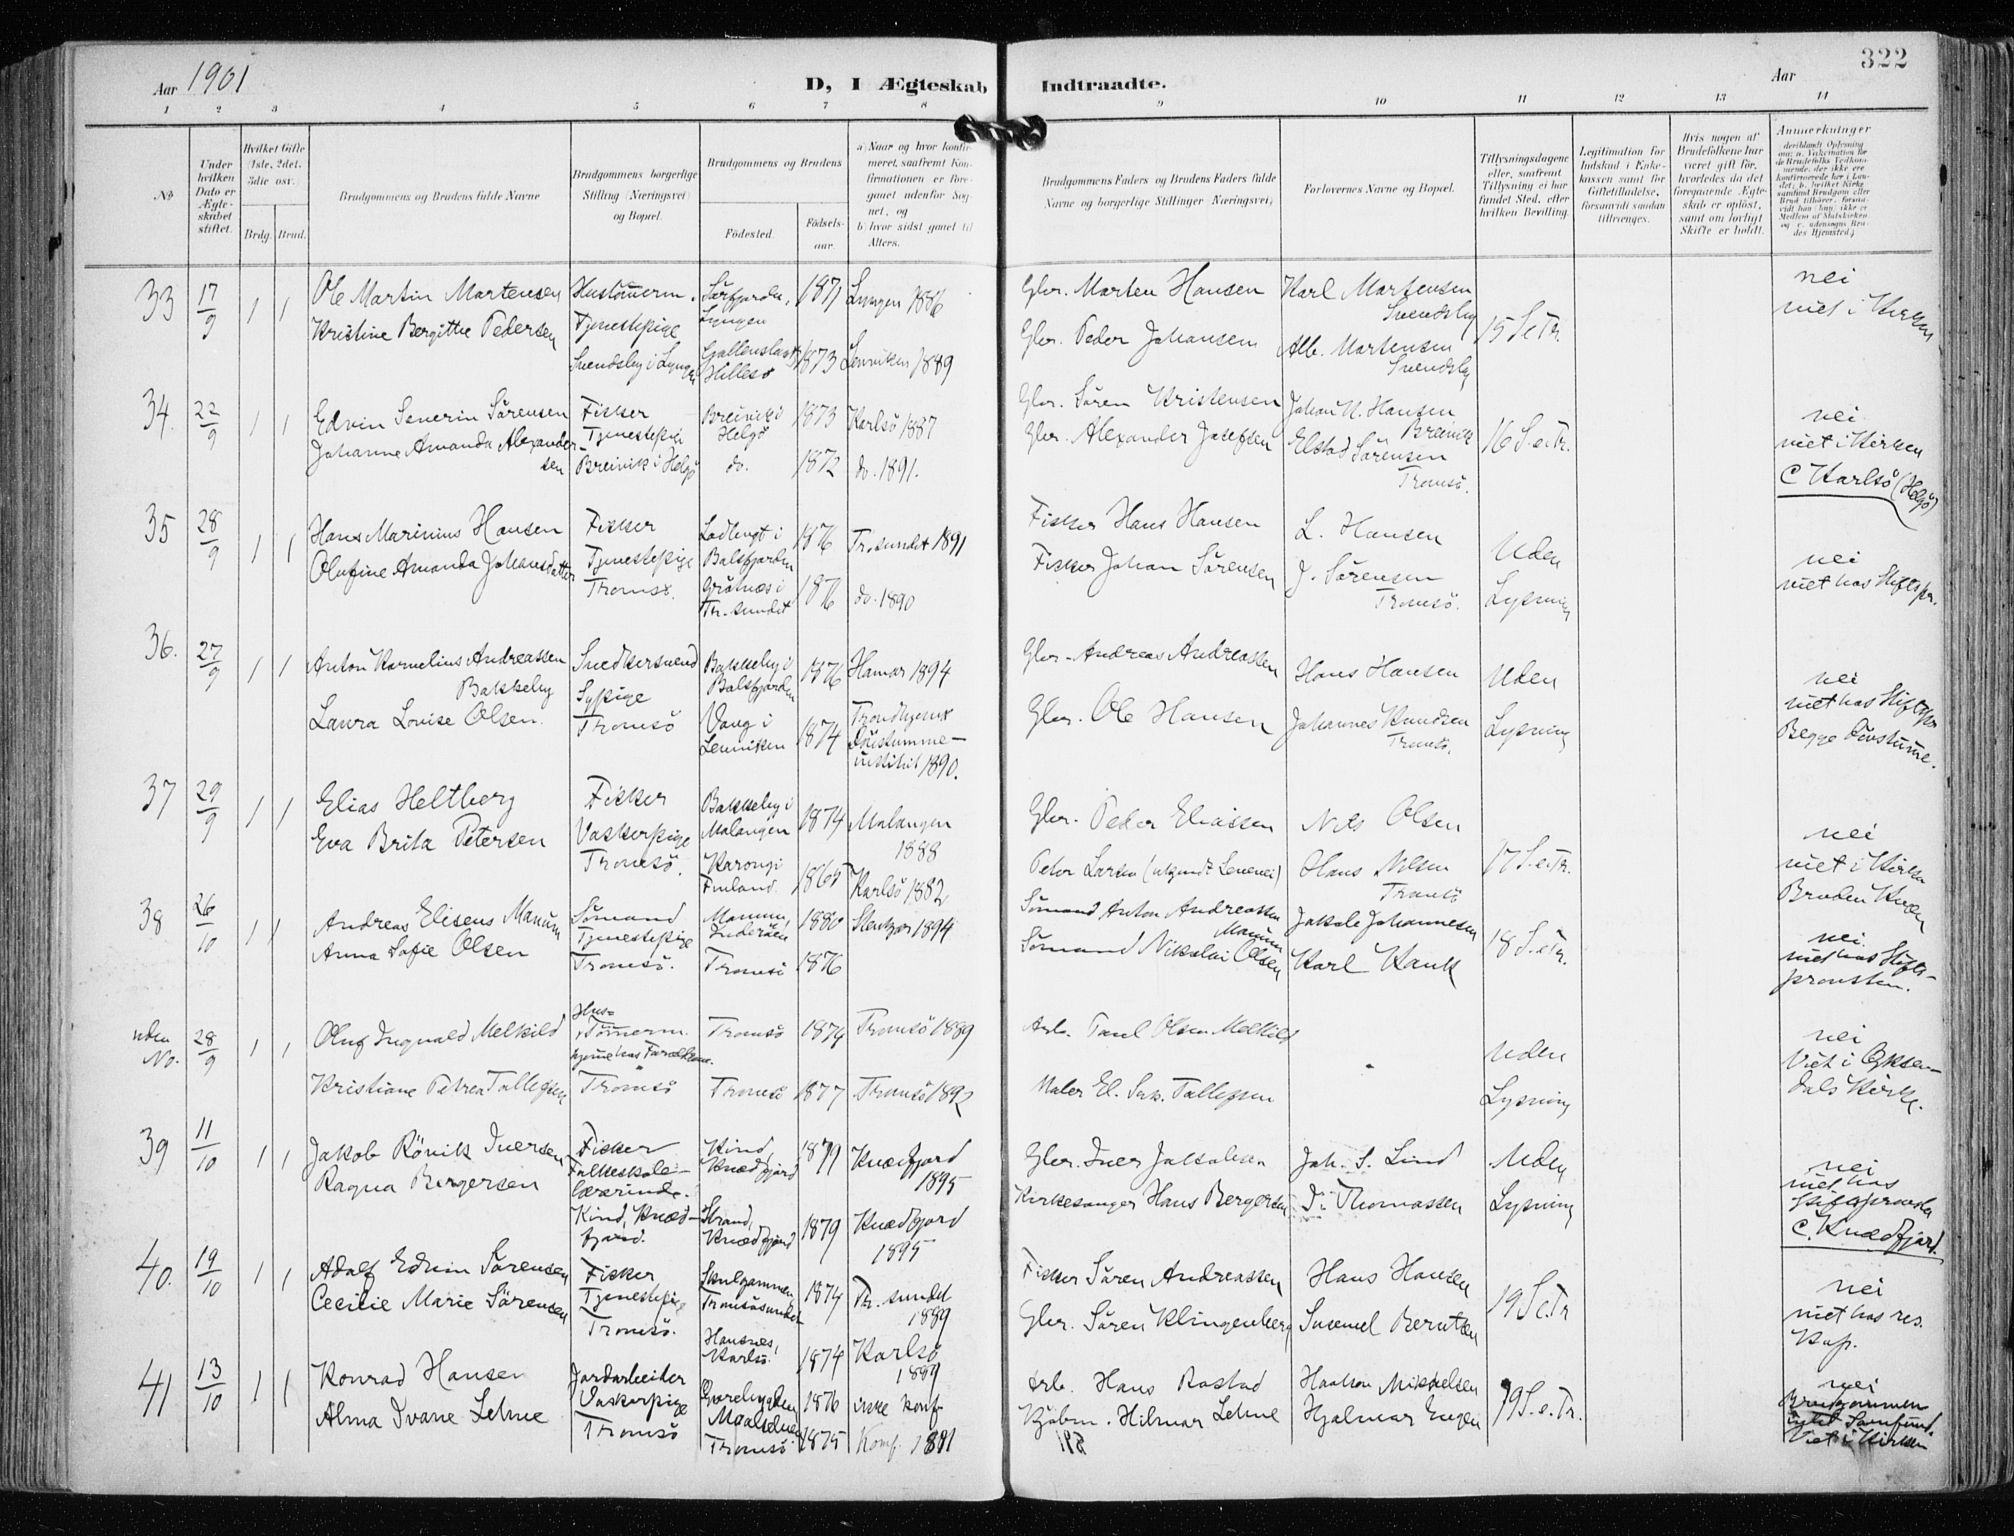 Aar 1901
D, I Ægteskab Indtraadte.
Aar
322
1 2 3 4 5 6 7 8 9 10 11 12 13 14
No
Under hvilken Dato er Ægteskabet stiftet.
Hvilket Gifte (1ste, 2det, 3die osv.
Brdg. Brud.
Brudgommens og Brudens fulde Navne
Brudgommens borgerlige Stilling (Næringsvei) og Bopæl.
Brudgommens og Brudens
Fødested.
Fødselsaar.
a) Naar og hvor konfirmeret, saafremt Konfirmationen er foregaaet udenfor Sognet, og
b) hvor sidst gaaet til Alters.
Brudgommens Faders og Brudens Faders fulde Navne og borgerlige Stillinger (Næringsvei)
Forlovernes Navne og Bopæl.
Tillysningsdagene eller, saafremt Tillysning ei har fundet Sted, efter hvilken Bevilling.
Legitimation for Indskud i Enkekassen samt for Giftetilladelse, forsaavidt saadan tiltrænges.
Hvis nogen af Brudefolkene har været gift før, hvorledes da det foregaaende Ægteskab er opløst, samt om lovligt Skifte er holdt.
Anmerkninger
33 17/9 1 1
Ole Martin Martensen
Kristine Bergitte Pedersen
Hustømerm.
Tjenestepige
Svendsby i Lyngen
Sørfjorden, Lyngen 1871 Lyngen 1886
Hillesø 1873 Lenviken 1889
Gbr. Marten Hansen
Gbr. Peder Johansen
Karl Martensen Svendsby
Alb. Martensen Svendsby
15 S e Tr.
nei
viet i Kirken
34. 22/9 1 1
Edvin Severin Sørensen
Johanne Amanda Alexandersen
Fisker
Tjenestepige
Breivik i Helgø
Breivik i Helgø 1873 Karlsø 1887
do. 1872 do. 1891.
Gbr. Søren Kristensen
Gbr. Alexander Josefsen
Johan N. Hansen Breivik
Elstad Sørensen Tromsø.
16 S. e. Tr.
nei
viet i Kirken
C Karlsø (Helgø)
35 28/9 1 1
Hans Marinius Hansen
Olufine Amanda Johansdatter
Fisker
Tjenestepige
Tromsø.
Balsfjorden 1876 Tr.sundet 1891
Grøtnæs i Tr.sundet 1876 do. 1890
Fisker Hans Hansen
Fisker Johan Sørensen
L. Hansen
J. Sørensen Tromsø.
Uden Lysning
nei
viet hos Stiftspr.
36. 27/9 1 1
Anton Kornelius Andreassen Bakkeby
Laura Lovise Olsen.
Snedkersvend
Sypige
Tromsø
Bakkeby i Balsfjorden 1876 Hamar 1894
Vang i Lenviken 1874 Trondhjems Døvstummeinstitut 1890.
Gbr. Andreas Andreassen
Gbr. Ole Hansen
Hans Hansen
Johannes Knudsen Tromsø.
Uden Lysning
nei
viet hos Stiftspr
Begge Døvstumme.
37 29/9 1 1
Elias Heltberg
Eva Brita Petersen
Fisker
Vaskerpige
Tromsø.
Bakkeby i Malangen 1874 Malangen 1888
Karungi Finland. 1865 Karlsø 1882
Gbr. Peder Eliassen
Peter Larsen
Nils Olsen
Hans Nilsen Tromsø
17 S. e. Tr.
nei
viet i Kirken
Bruden Kvæn
38 26/10 1 1
Andreas Elisens Manum
Anna Sofie Olsen
Sømand
Tjenestepige
Tromsø.
Manum, Inderøen 1880 Stenkjær 1894
Tromsø 1876
Sømand Anton Andreassen Manum
Sømand Nikolai Olsen
Jakob Johannesen
Karl Hauk
18 S. e Tr.
nei
viet hos Stiftsprovsten.
uden No. 28/9 1 1
Oluf Ingvald Melkild
Kristiane Petrea Tollefsen
Hustømerm.
hjeme hos Forældrene.
Tromsø
Tromsø 1874 Tromsø 1889
Tromsø 1877 Tromsø 1892
Arb. Paul Olsen Melkild
Maler El. Tollefsen
Uden Lysning
nei
Viet i Øksendals Kirke.
39 11/10 1 1
Jakob Rövik Iversen
Ragna Bergersen
Fisker
Folkeskolelærerinde.
Kind, Kvædfjord.
Kind, Kvædfjord 1879 Kvæfjord 1895
Strand, Kvædfjord 1879 Kvædfjord 1895
Gbr. Iver Jakobsen
Kirkesanger Hans Bergersen
Joh. S. Lind
D. Thomassen
Uden Lysning
nei
viet hos Stiftsprovsten
C. Kvædfjord.
40. 19/10 1 1
Adolf Edvin Sørensen
Cecilie Marie Sørensen
Fisker
Tjenestepige
Tromsø.
Skulgammen, Tromsøsundet 1874 Tr. sundet 1889
Hansnes, Karlsø. 1874 Karlsø 1889
Fisker Søren Andreassen
Gbr. Søren Klingenberg
Hans Hansen
Samuel Berntsen
19 S e Tr
nei
viet hos res. Kap.
41 13/10 1 1
Konrad Hansen
Alma Ivane Lehne
Jordarbeider
Vaskerpige
Tromsø
Maalselven 1876 ikke konf.
Tromsø. 1875 Konf. 1891
Arb. Hans Rostad
Kjøbm. Hilmar Lehne
Haakon Mikkelsen
Hjalmar Engen
19 S. e. Tr.
nei
Brudgommen intet Samfund.
Viet i Kirken